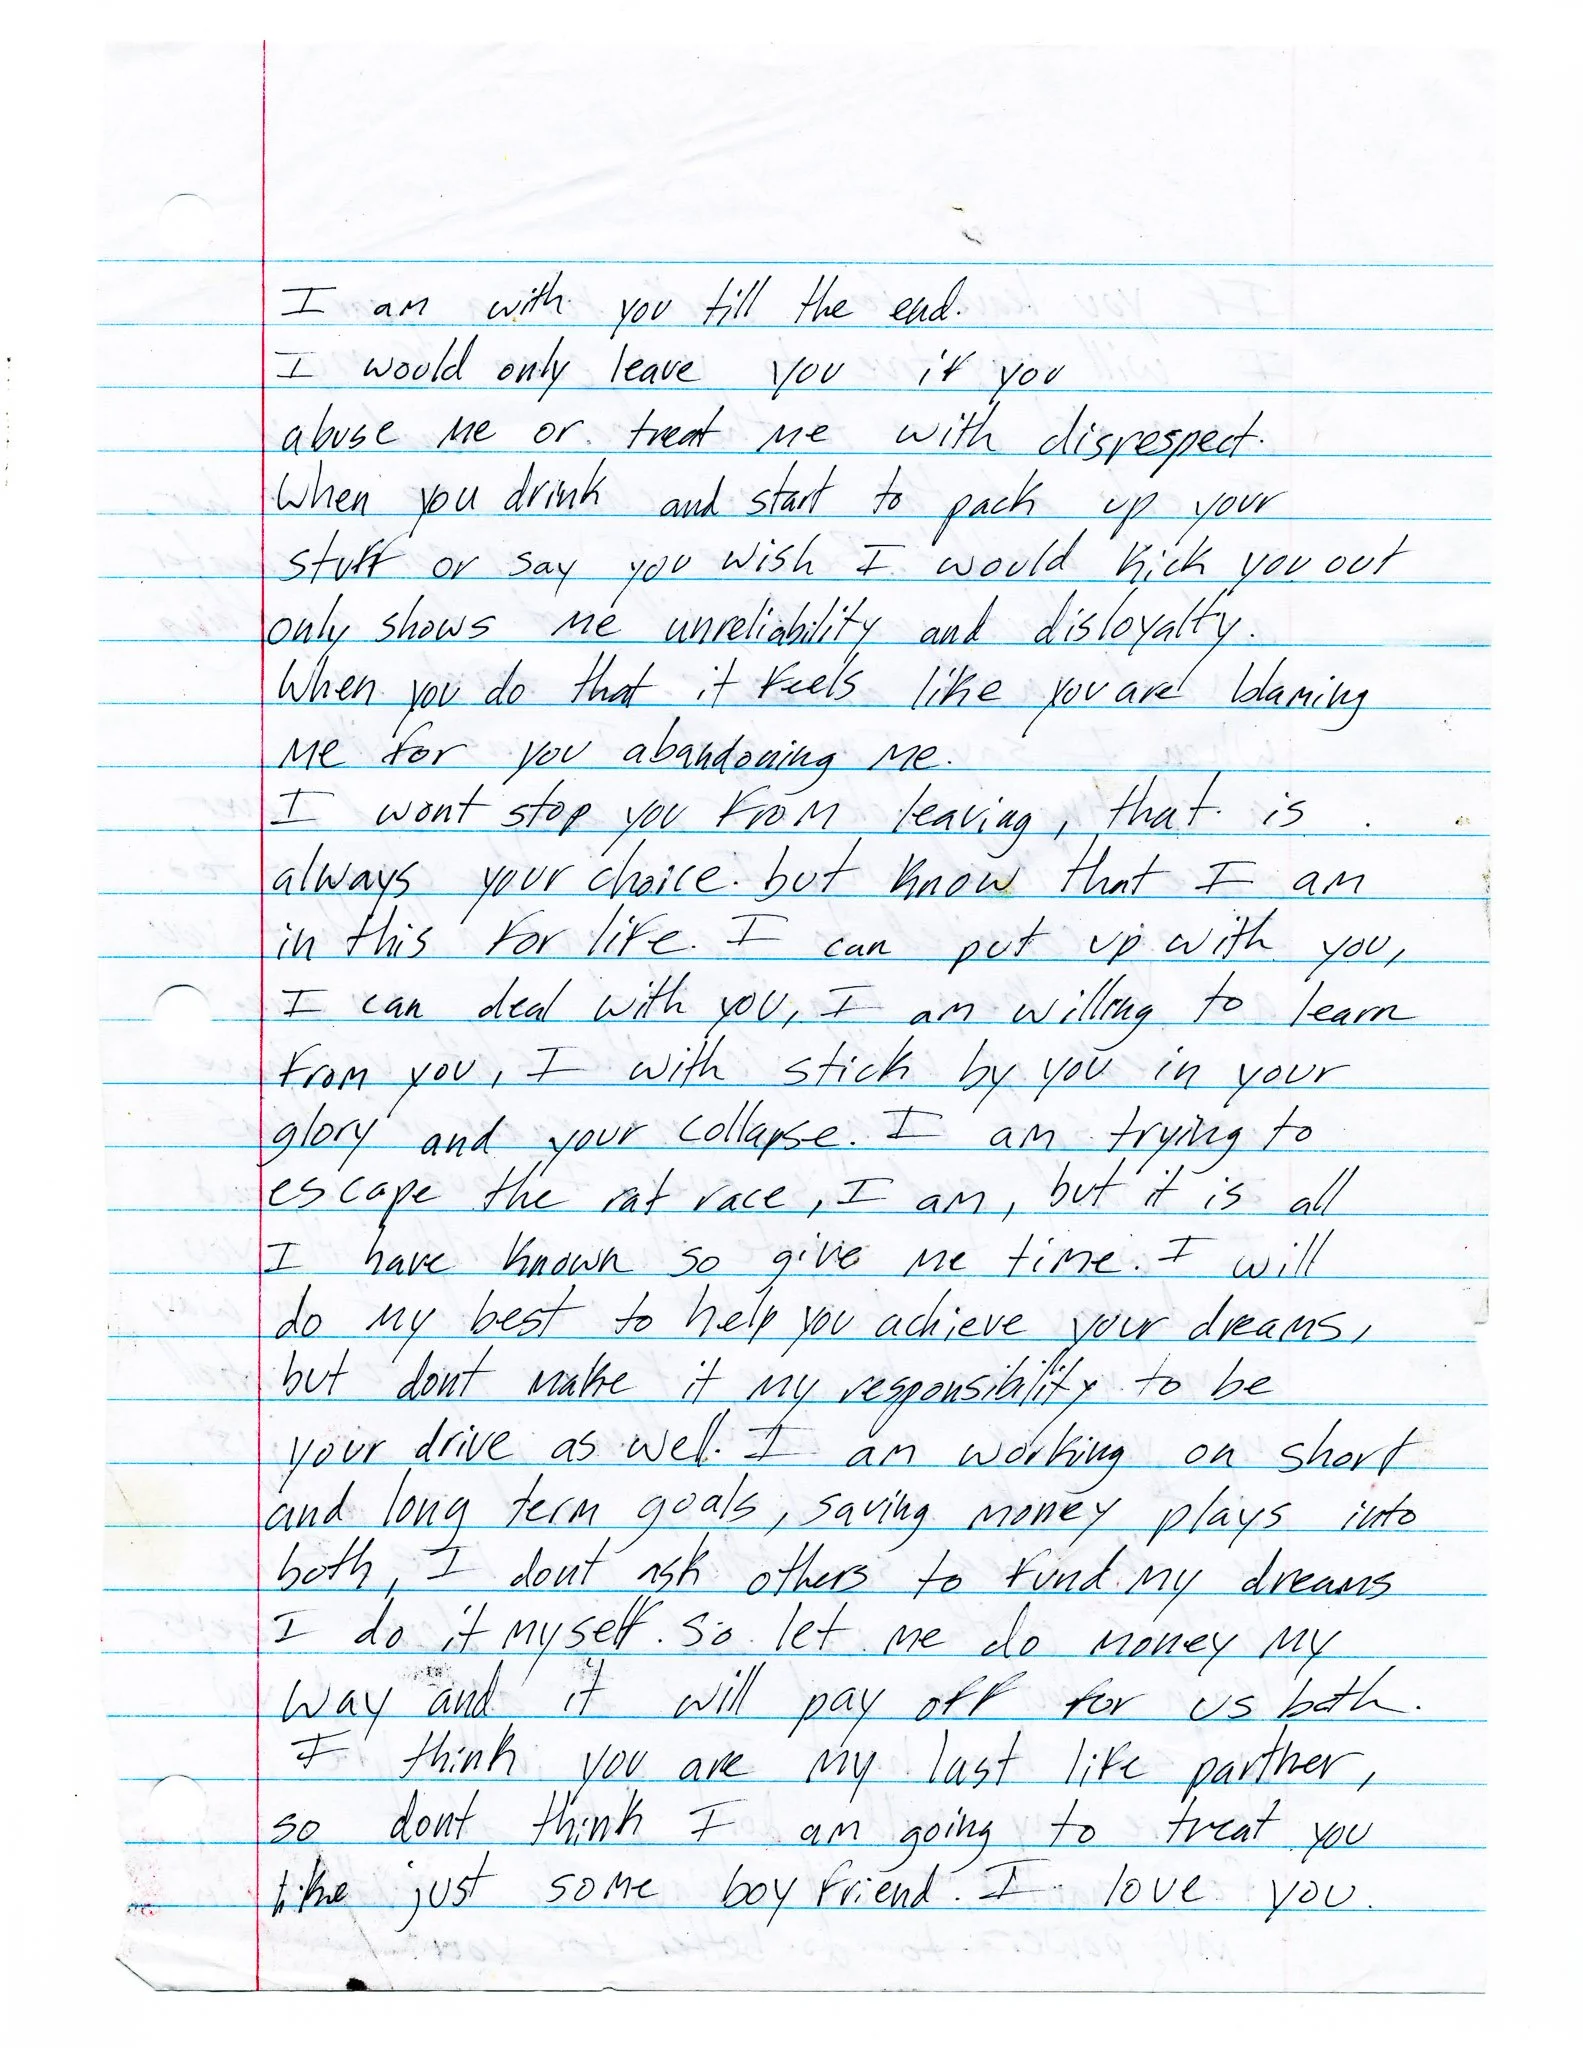 I am with you till the end.
I would only leave you if you
abuse me or treat me with disrespect.
When you drink and start to pack up your
stuff or say you wish I would kick you out
only shows me unreliability and disloyalty.
When you do that it feels like you are blaming
me for you abandoning me.
I wont stop you from leaving, that is
always your choice. but know that I am
in this for life. I can put up with you,
I can deal with you, I am willing to learn
from you, I with stick by you in your
glory and your collapse. I am trying to
escape the rat race, I am, but it is all
I have known so give me time. I will
do my best to help you achieve your dreams,
but dont make it my responsibility to be
your drive as well. I am working on short
and long term goals, saving money plays into
both, I dont ask others to fund my dreams
I do it myself. So let me do money my
way and it will pay off for us both.
I think you are my last life partner,
so dont think I am going to treat you
like just some boyfriend. I love you.